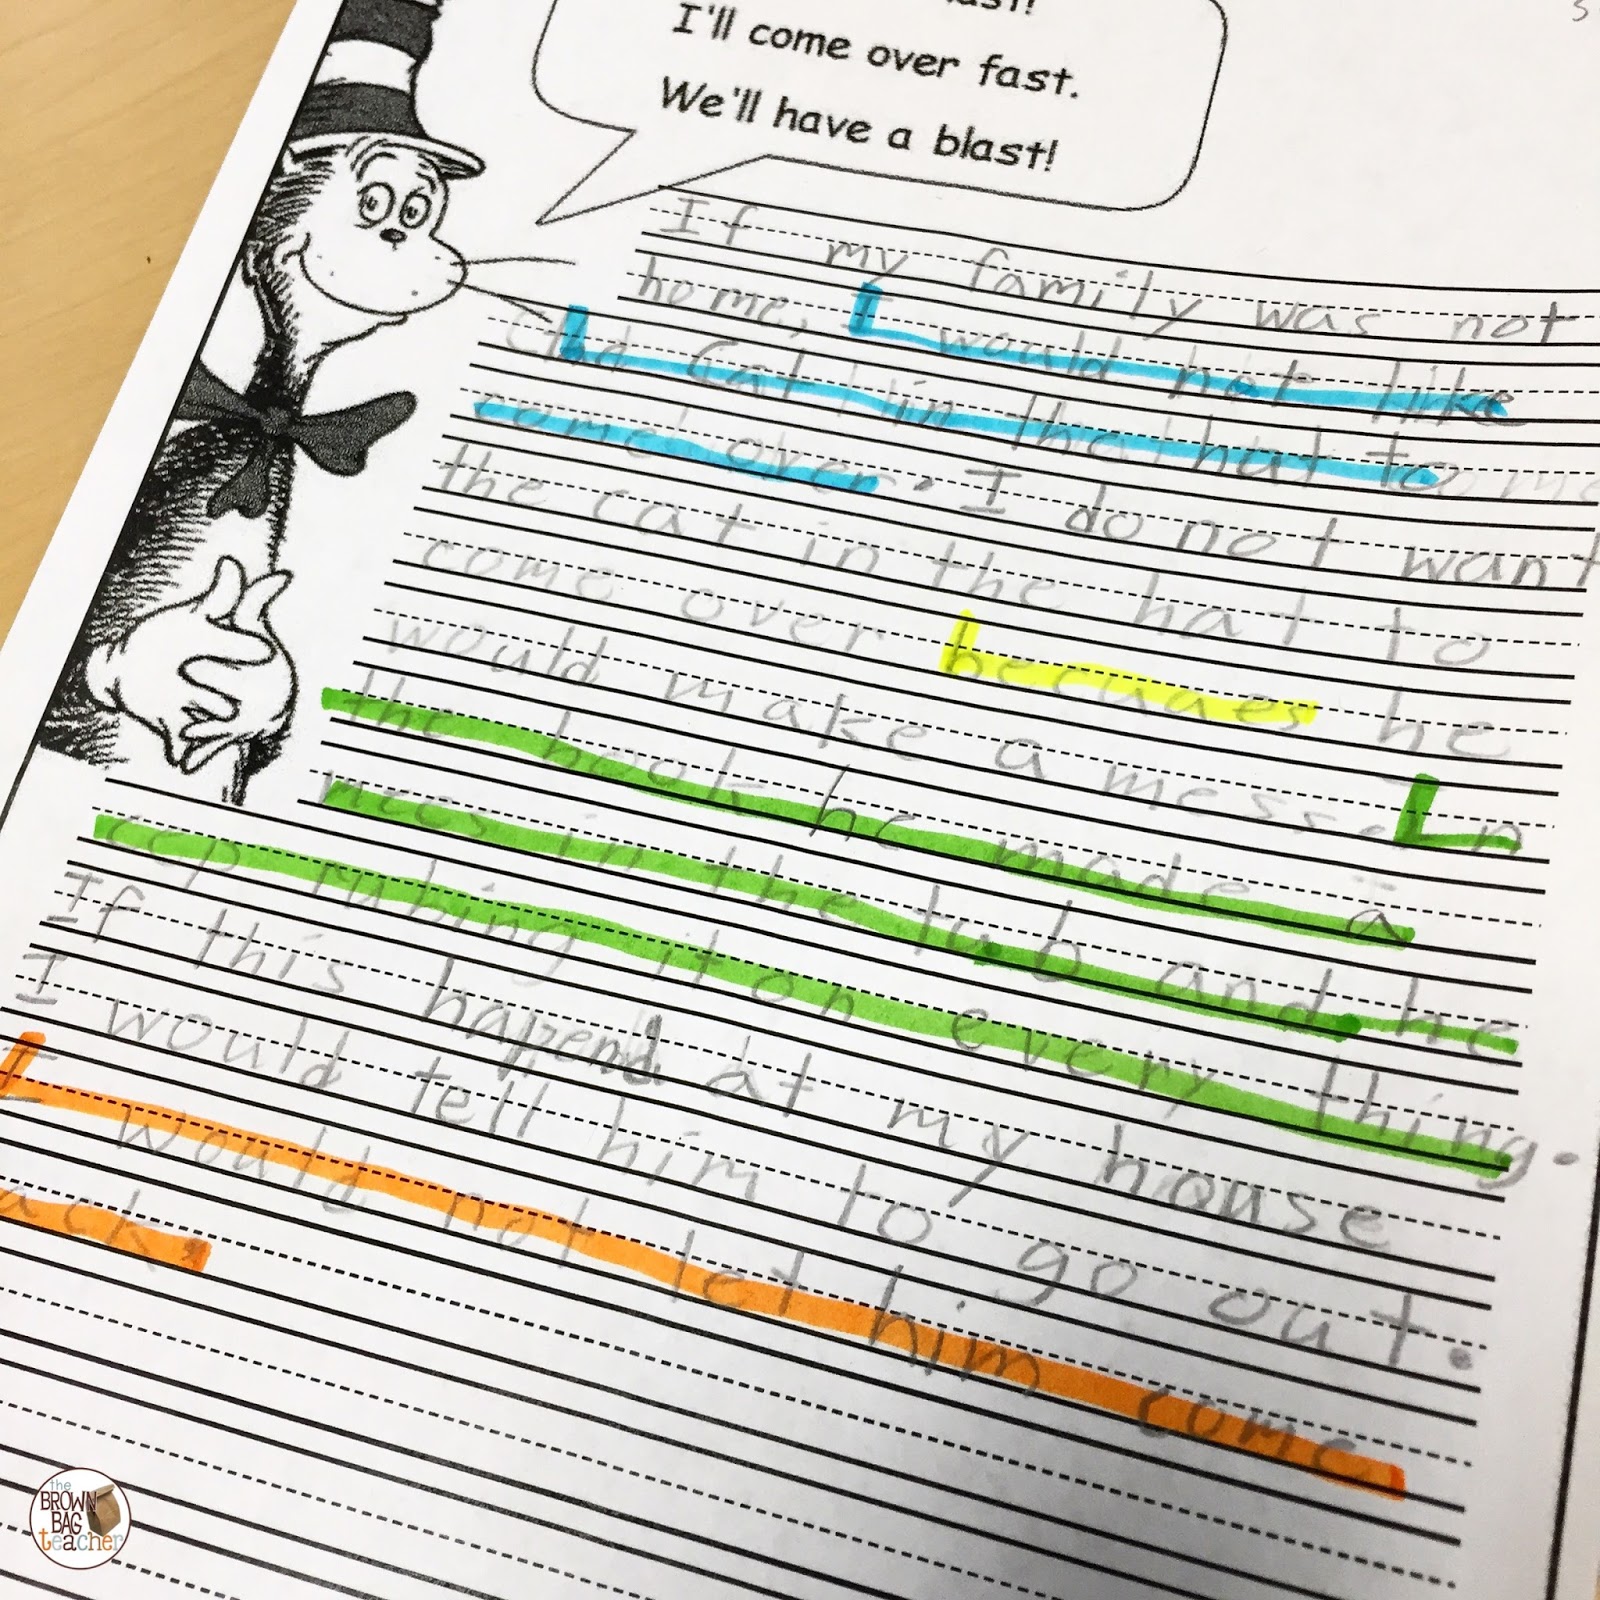 I'll come over fast.
We'll have a blast!
If my family was not
home, I would not like
Cat in the hat to
come over. I do not want
the cat in the hat to
come over becuaes he
would make a mess. In
the book he made a
mees in the tub and he
cep rubing it on every thing.
If this hapend at my house
I would tell him to go out.
I would not let him come
ack.
the
BROWN
BAG
teacher